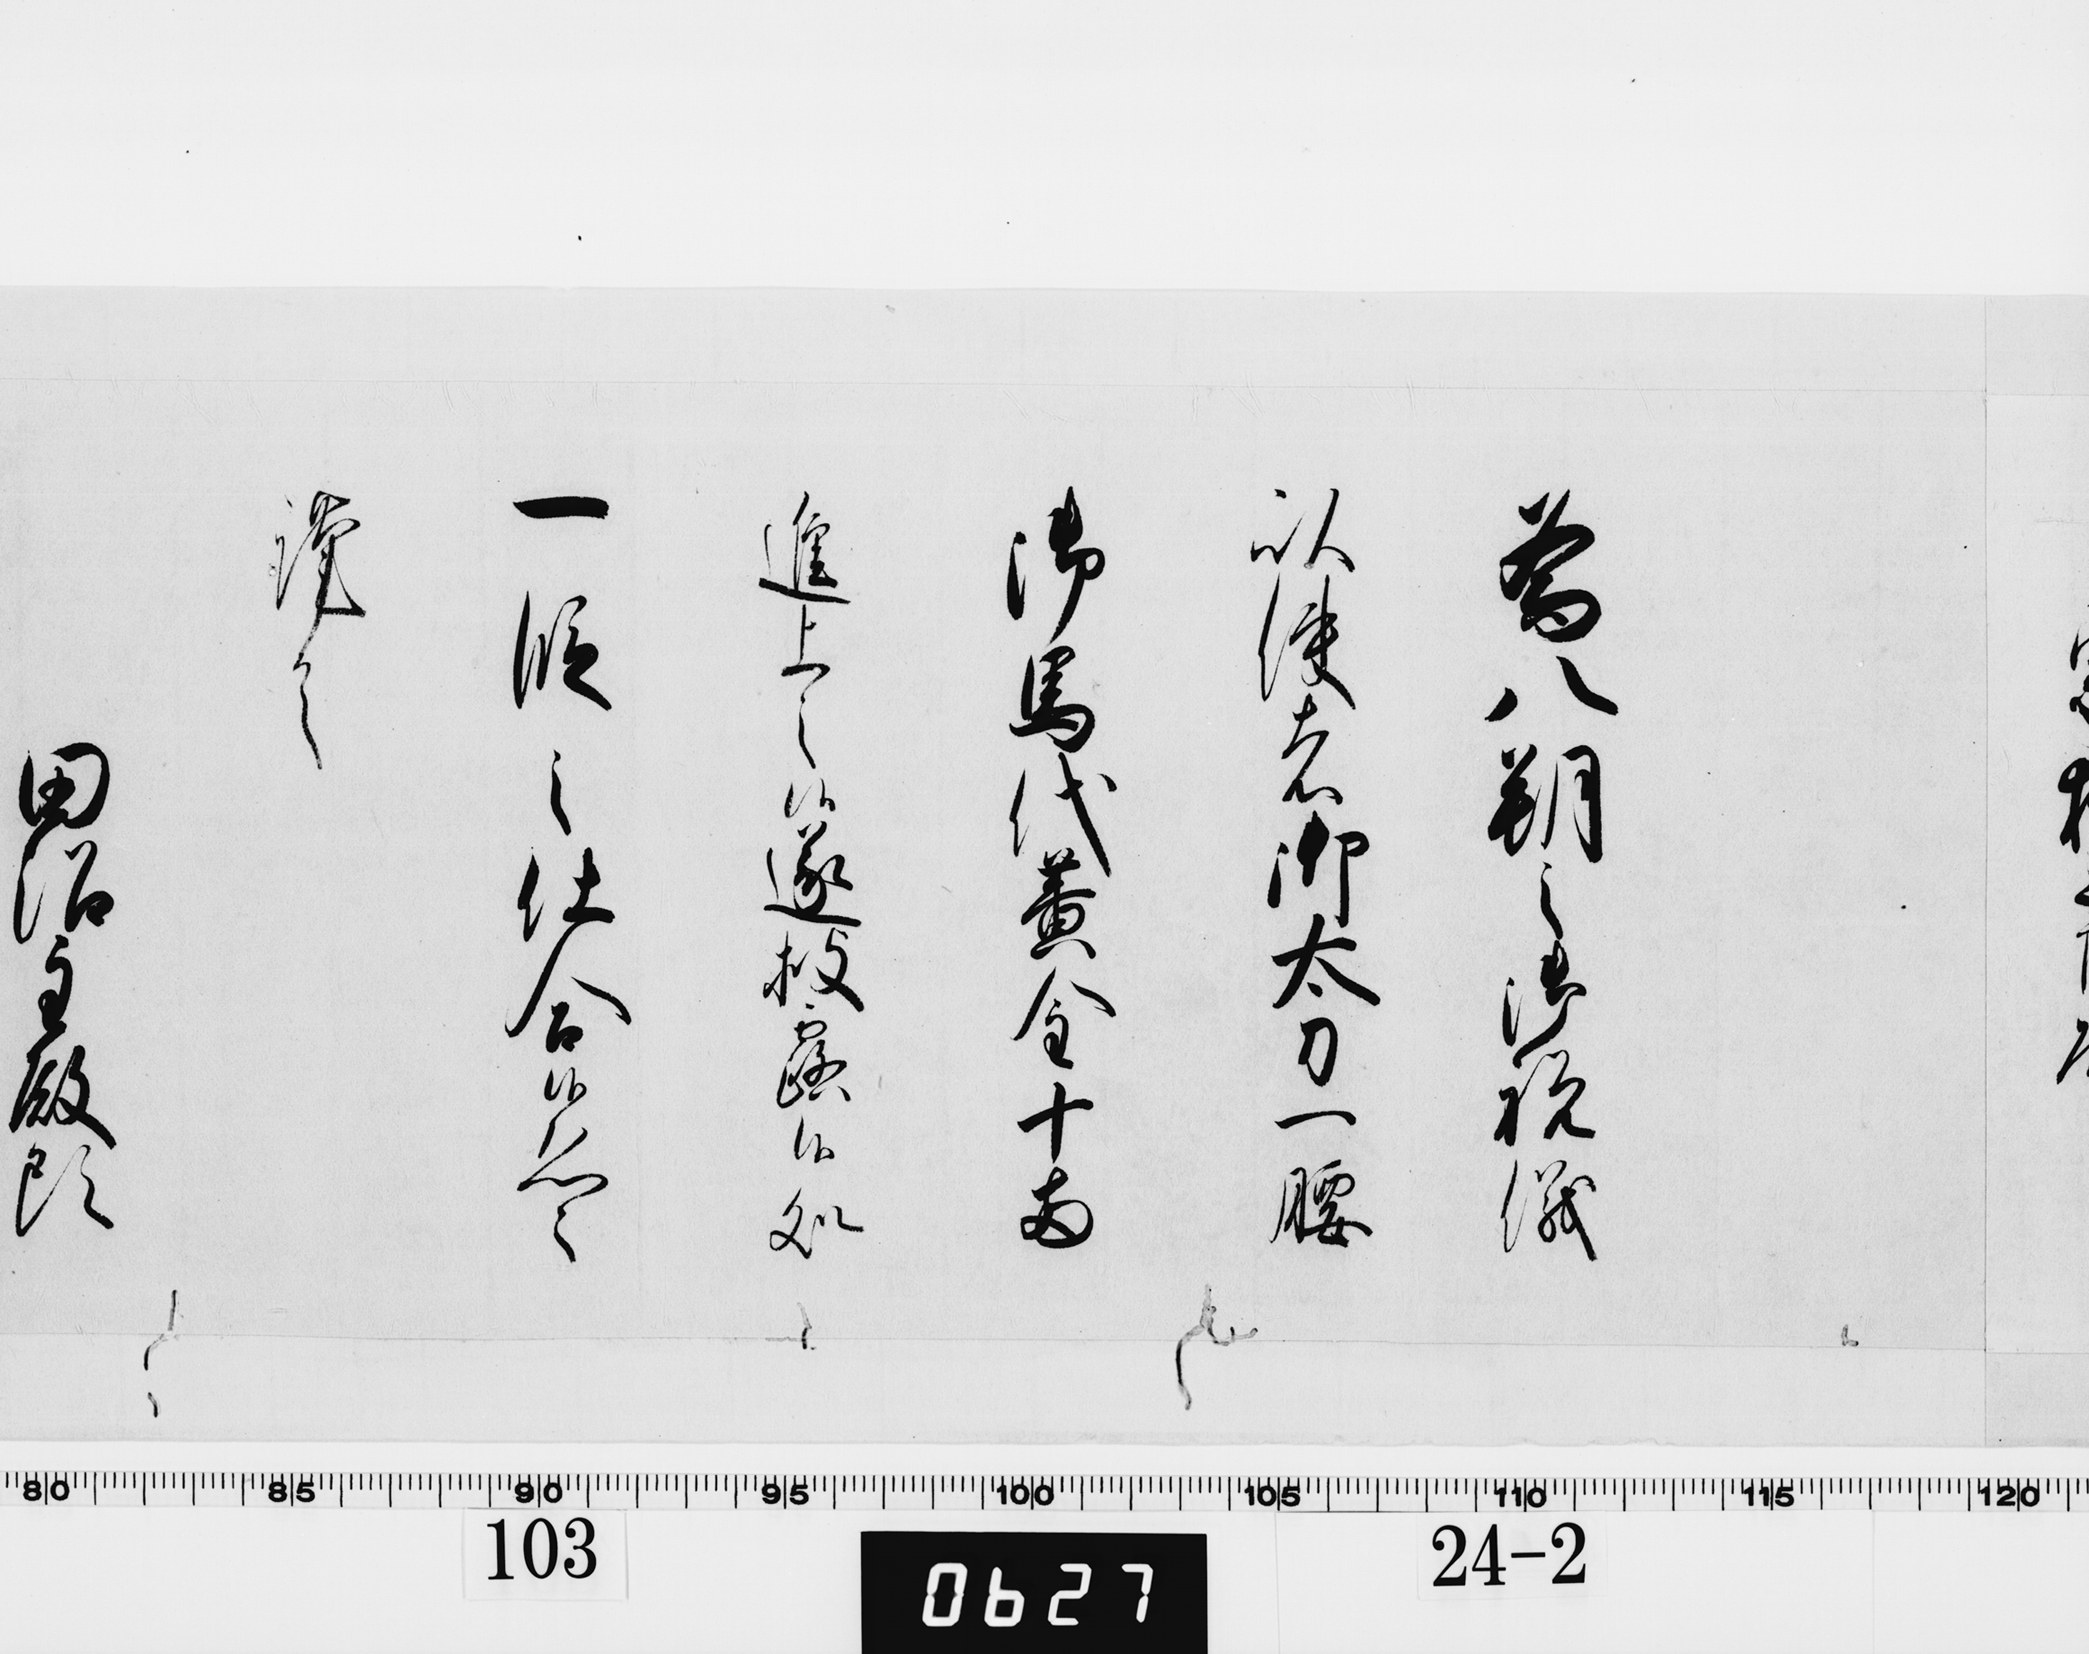 為八朔之御祝儀
以使者御太刀一腰
御馬代黄金十両
進上之候遂披露候処
一段之仕合候恐々
謹言
田沼主殿頭
80 85 90 95 100 105 110 115 120
103
0627
24-2